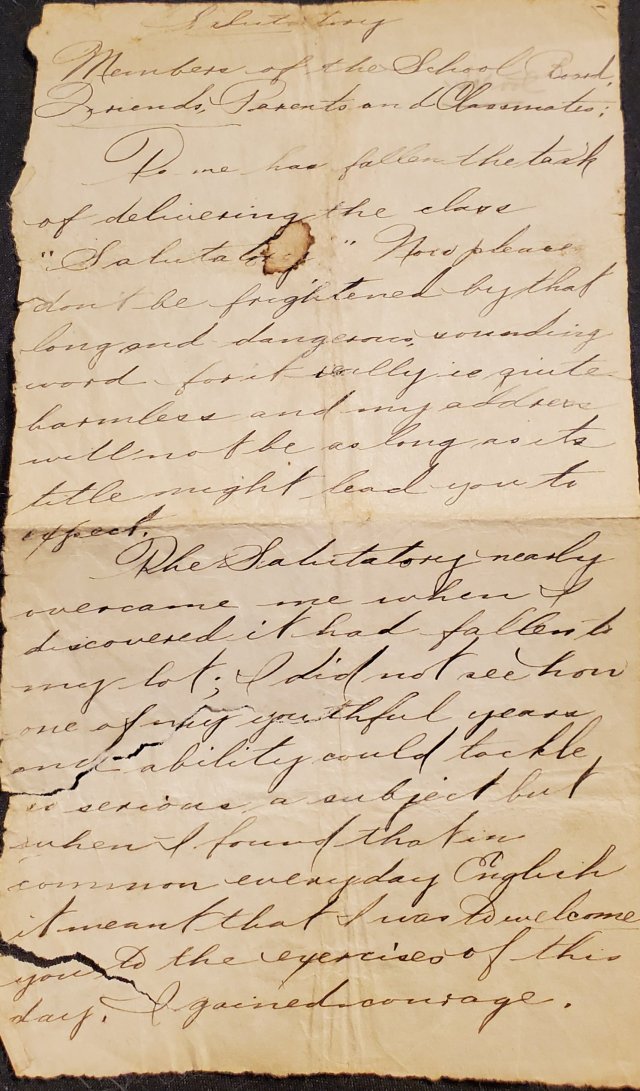 Salutatory
Members of the School Board,
Friends, Parents and Classmates;
To me has fallen the task
of delivering the class
"Salutatory" Now please
don't be frightened by that
long and dangerous sounding
word for it really is quite
harmless and my address
will not be as long as its
title might lead you to
expect.
The Salutatory nearly
overcame me when I
discovered it had fallen to
my lot; I did not see how
one of my youthful years
and ability could tackle
so serious a subject but
when I found that in
common everyday English
it meant that I was to welcome
you to the exercises of this
day. I gained courage.